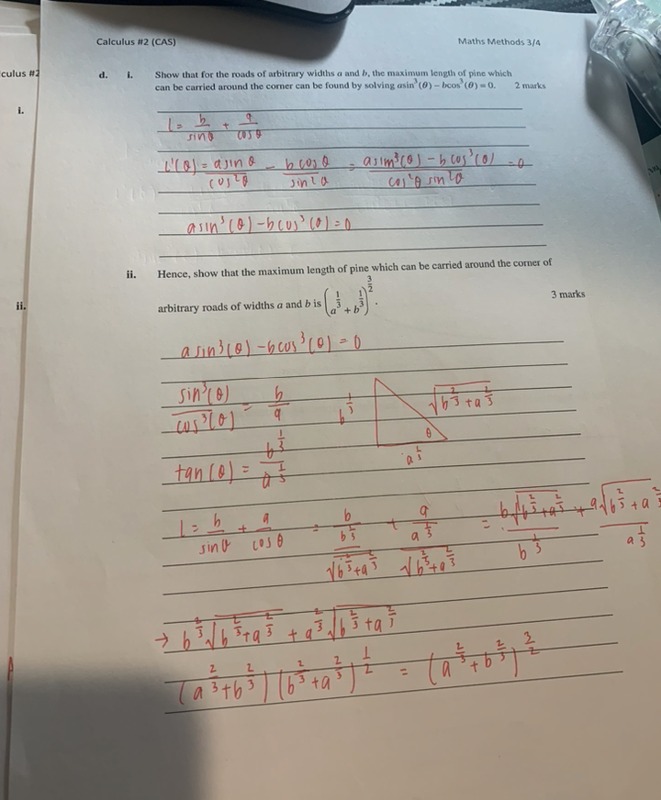 Calculus #2 (CAS) Maths Methods 3/4
culus #2
d. i. Show that for the roads of arbitrary widths a and b, the maximum length of pine which
can be carried around the corner can be found by solving asin³(θ) – bcos³(θ) = 0. 2 marks
i.
l = b/sinθ + a/cosθ
L'(θ) = a sinθ/cos²θ - b cosθ/sin²θ = a sin³(θ) - b cos³(θ)/cos²θ sin²θ = 0
a sin³(θ) - b cos³(θ) = 0
ii. Hence, show that the maximum length of pine which can be carried around the corner of
ii.
arbitrary roads of widths a and b is (a^(1/3) + b^(1/3))^(3/2). 3 marks
a sin³(θ) - b cos³(θ) = 0
sin³(θ)/cos³(θ) = b/a
b^(1/3) √(b^(2/3) + a^(2/3))
θ
a^(1/3)
tan(θ) = b^(1/3)/a^(1/3)
l = b/sinθ + a/cosθ = b/(b^(1/3)/√(b^(2/3) + a^(2/3))) + a/(a^(1/3)/√(b^(2/3) + a^(2/3))) = b√(b^(2/3) + a^(2/3))/b^(1/3) + a√(b^(2/3) + a^(2/3))/a^(1/3)
→ b^(2/3)√(b^(2/3) + a^(2/3)) + a^(2/3)√(b^(2/3) + a^(2/3))
(a^(2/3) + b^(2/3))(b^(2/3) + a^(2/3))^(1/2) = (a^(2/3) + b^(2/3))^(3/2)